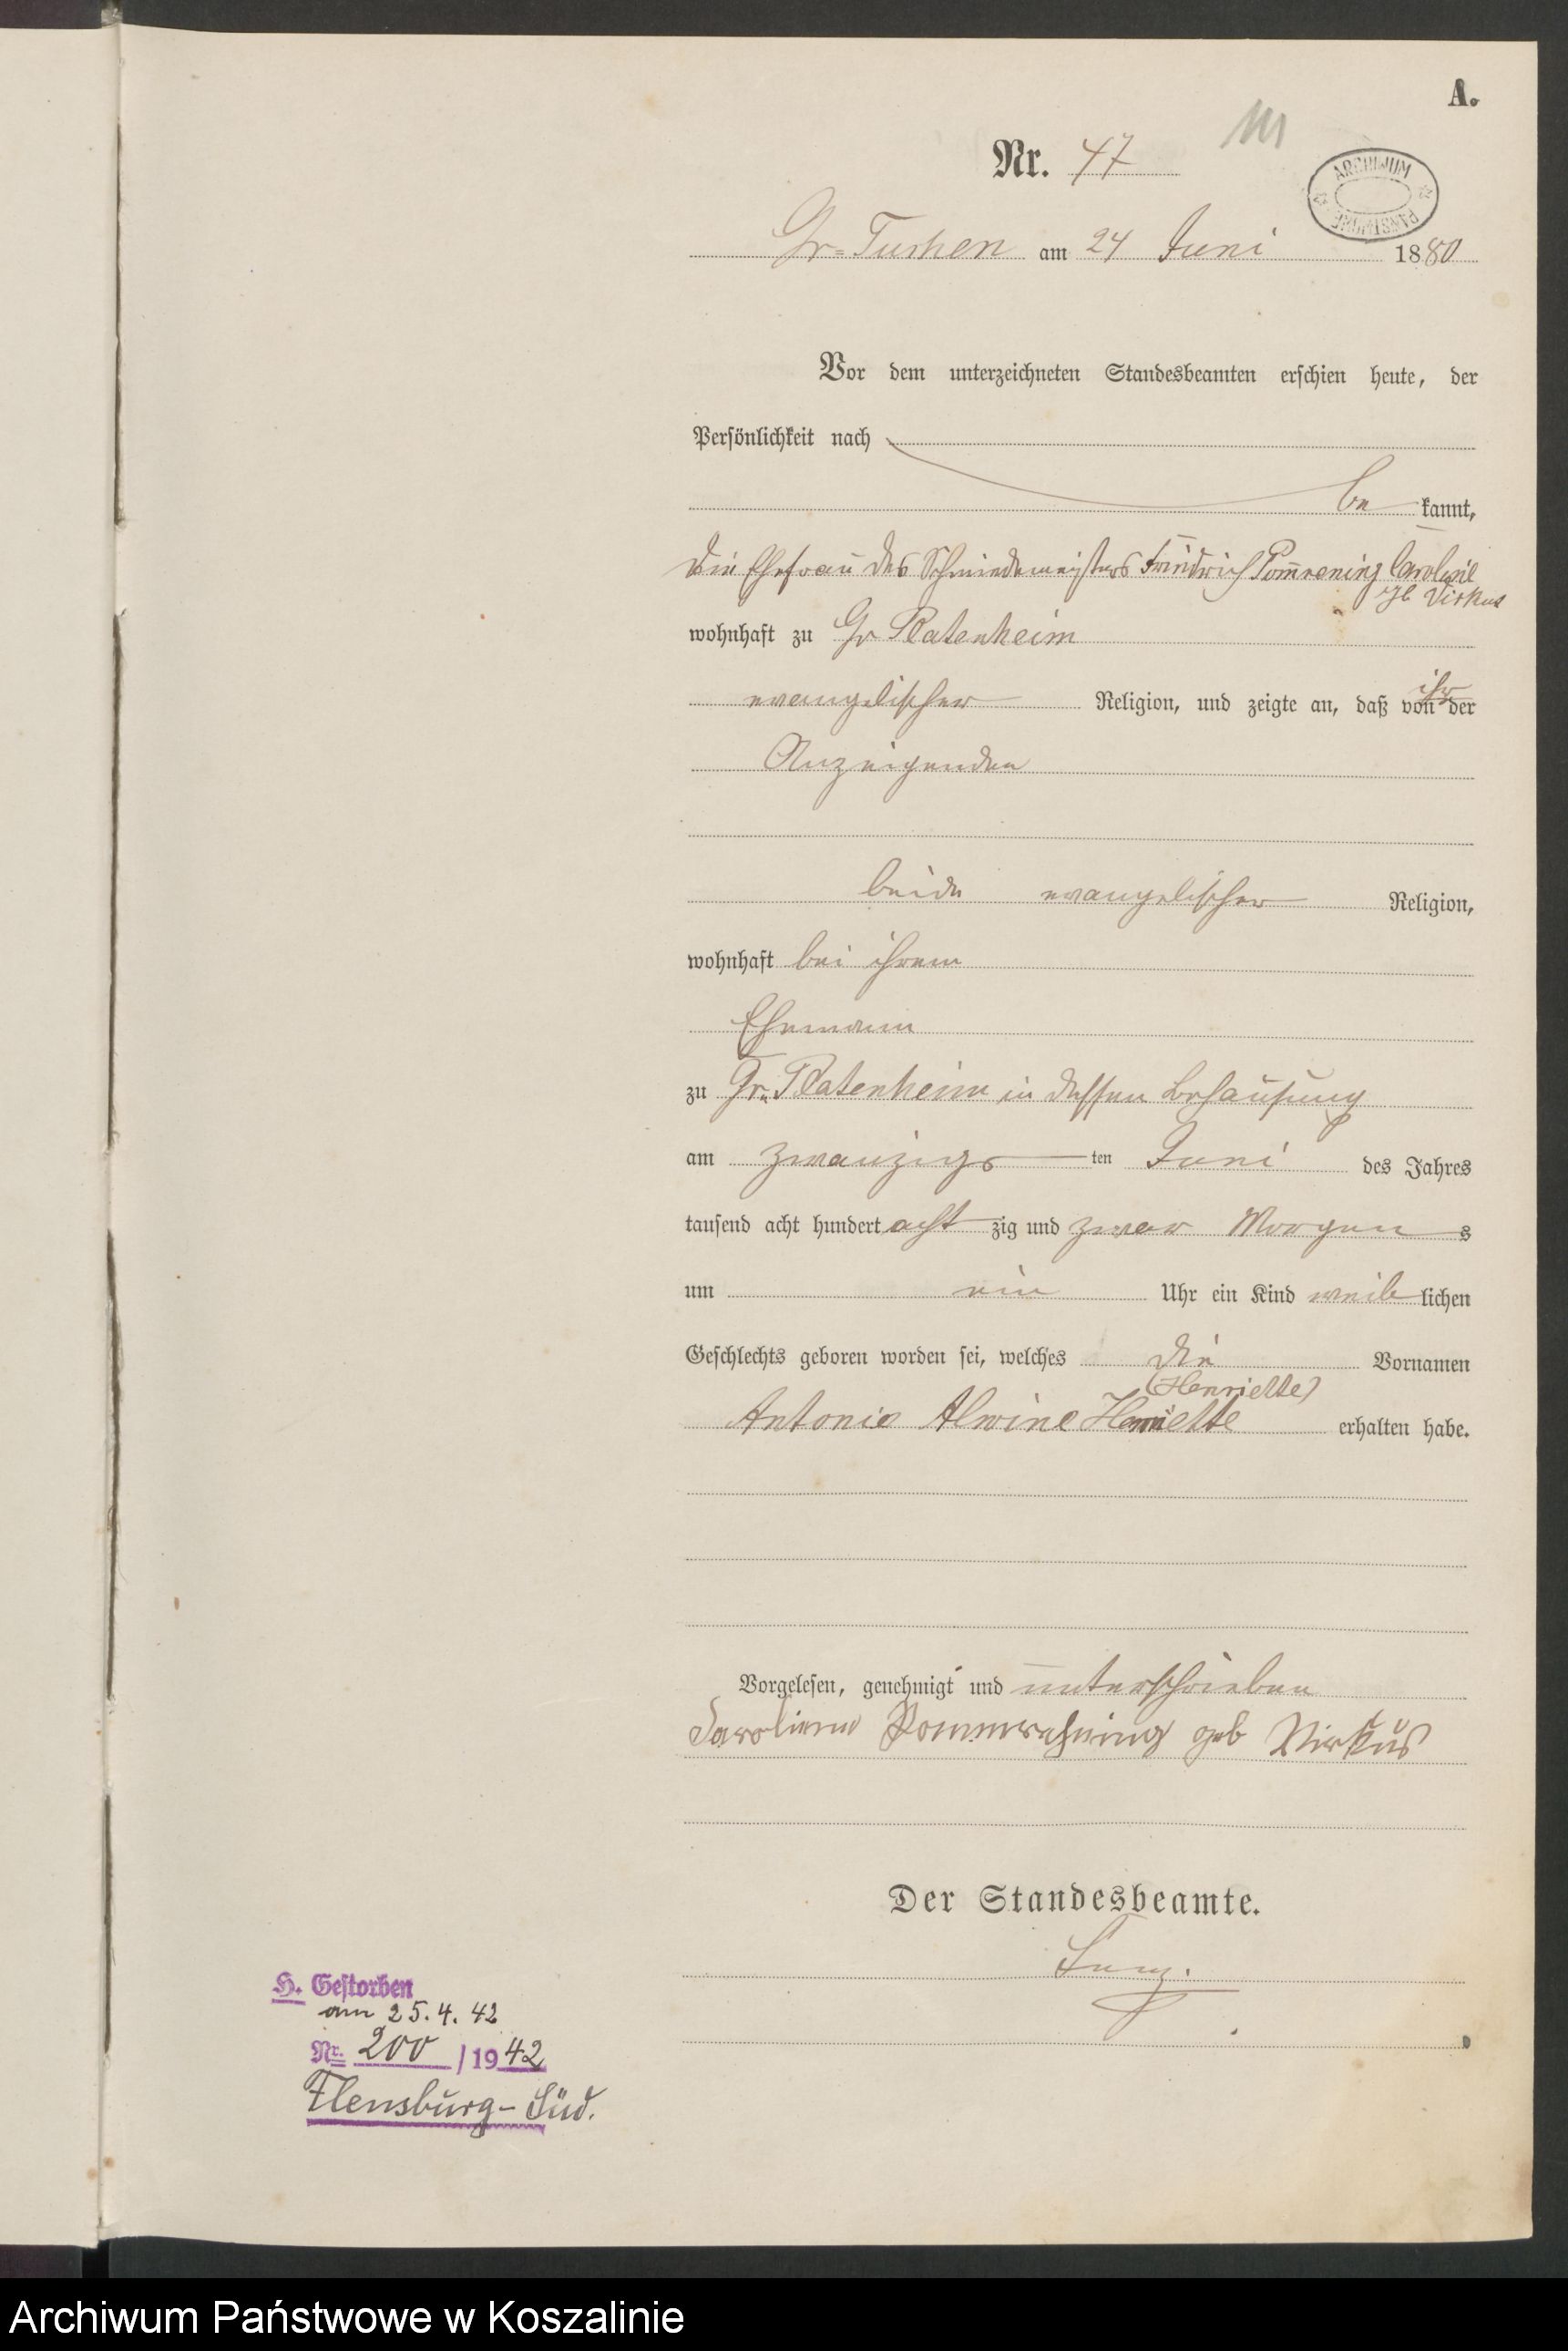 A.
Nr. 47
ARCHIWUM PAŃSTWOWE
Gr=Tuchen am 24 Juni 1880
Vor dem unterzeichneten Standesbeamten erschien heute, der
Persönlichkeit nach
be kannt,
die Ehefrau des Schmiedemeisters Friedrich Pom̄rening Caroline
geb Virkus
wohnhaft zu Gr Platenheim
evangelischer Religion, und zeigte an, daß von der
ihr
Anzeigenden
beide evangelischer Religion,
wohnhaft bei ihrem
Ehemann
zu Gr. Platenheim in dessen Behausung
am zwanzigs ten Juni des Jahres
tausend acht hundert acht zig und zwar Morgen s
um ein Uhr ein Kind weib lichen
Geschlechts geboren worden sei, welches die Vornamen
(Henriette)
Antonie Alwine Henriette erhalten habe.
Vorgelesen, genehmigt und unterschrieben
Caroliene Pommrehning geb Virkus
Der Standesbeamte.
H. Gestorben
am 25.4.42
Nr. 200 / 1942
Flensburg-Süd.
Archiwum Państwowe w Koszalinie